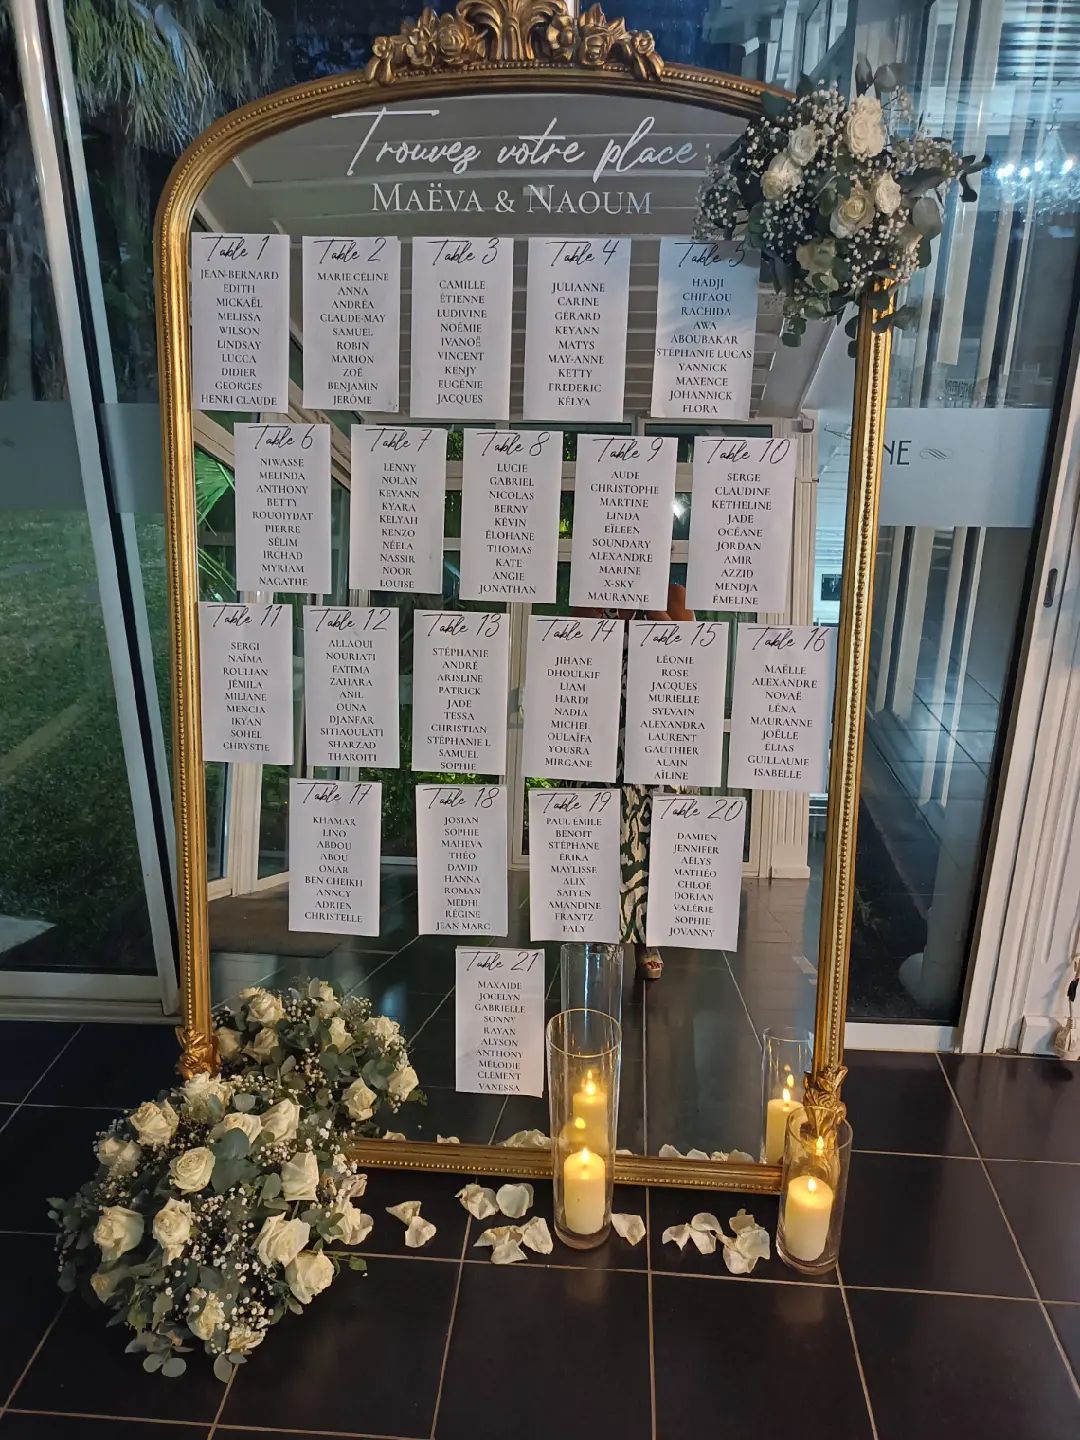 Trouvez votre place:
MAËVA & NAOUM
Table 1
JEAN-BERNARD
EDITH
MICKAËL
MELISSA
WILSON
LINDSAY
LUCCA
DIDIER
GEORGES
HENRI CLAUDE
Table 2
MARIE CÉLINE
ANNA
ANDRÉA
CLAUDE-MAY
SAMUEL
ROBIN
MARION
ZOÉ
BENJAMIN
JERÔME
Table 3
CAMILLE
ÉTIENNE
LUDIVINE
NOÉMIE
IVANOË
VINCENT
KENJY
EUGÉNIE
JACQUES
Table 4
JULIANNE
CARINE
GÉRARD
KEYANN
MATYS
MAY-ANNE
KETTY
FREDERIC
KÉLYA
Table 5
HADJI
CHIFAOU
RACHIDA
AWA
ABOUBAKAR
STÉPHANIE LUCAS
YANNICK
MAXENCE
JOHANNICK
FLORA
Table 6
NIWASSE
MELINDA
ANTHONY
BETTY
ROUQIYDAT
PIERRE
SÉLIM
IRCHAD
MYRIAM
NAGATHE
Table 7
LENNY
NOLAN
KEYANN
KYARA
KELYAH
KENZO
NÉELA
NASSIR
NOOR
LOUISE
Table 8
LUCIE
GABRIEL
NICOLAS
BERNY
KÉVIN
ÉLOHANE
THOMAS
KATE
ANGIE
JONATHAN
Table 9
AUDE
CHRISTOPHE
MARTINE
LINDA
EÏLEEN
SOUNDARY
ALEXANDRE
MARINE
X-SKY
MAURANNE
Table 10
SERGE
CLAUDINE
KETHELINE
JADE
OCÉANE
JORDAN
AMIR
AZZID
MENDJA
ÉMELINE
NE
Table 11
SERGI
NAÏMA
ROULIAN
JÉMILA
MILIANE
MENCIA
IKYAN
SOHEL
CHRYSTIE
Table 12
ALLAOUI
NOURIATI
FATIMA
ZAHARA
ANIL
OUNA
DJANFAR
SITIAOULATI
SHARZAD
THAROITI
Table 13
STÉPHANIE
ANDRÉ
ARISLINE
PATRICK
JADE
TESSA
CHRISTIAN
STÉPHANIE L
SAMUEL
SOPHIE
Table 14
JIHANE
DHOULKIF
LIAM
HARDI
NADIA
MICHEL
OULAÏFA
YOUSRA
MIRGANE
Table 15
LÉONIE
ROSE
JACQUES
MURIELLE
SYLVAIN
ALEXANDRA
LAURENT
GAUTHIER
ALAIN
AÏLINE
Table 16
MAËLLE
ALEXANDRE
NOVAË
LÉNA
MAURANNE
JOËLLE
ÉLIAS
GUILLAUME
ISABELLE
Table 17
KHAMAR
LINO
ABDOU
ABOU
OMAR
BEN CHEIKH
ANNCY
ADRIEN
CHRISTELLE
Table 18
JOSIAN
SOPHIE
MAHEVA
THÉO
DAVID
HANNA
ROMAN
MEDHI
RÉGINE
JEAN MARC
Table 19
PAUL ÉMILE
BENOIT
STÉPHANE
ÉRIKA
MAYLISSE
ALIX
SAIYEN
AMANDINE
FRANTZ
FALY
Table 20
DAMIEN
JENNIFER
AËLYS
MATHÉO
CHLOÉ
DORIAN
VALÉRIE
SOPHIE
JOVANNY
Table 21
MAXAIDE
JOCELYN
GABRIELLE
SONNY
RAYAN
ALYSON
ANTHONY
MÉLODIE
CLÉMENT
VANESSA